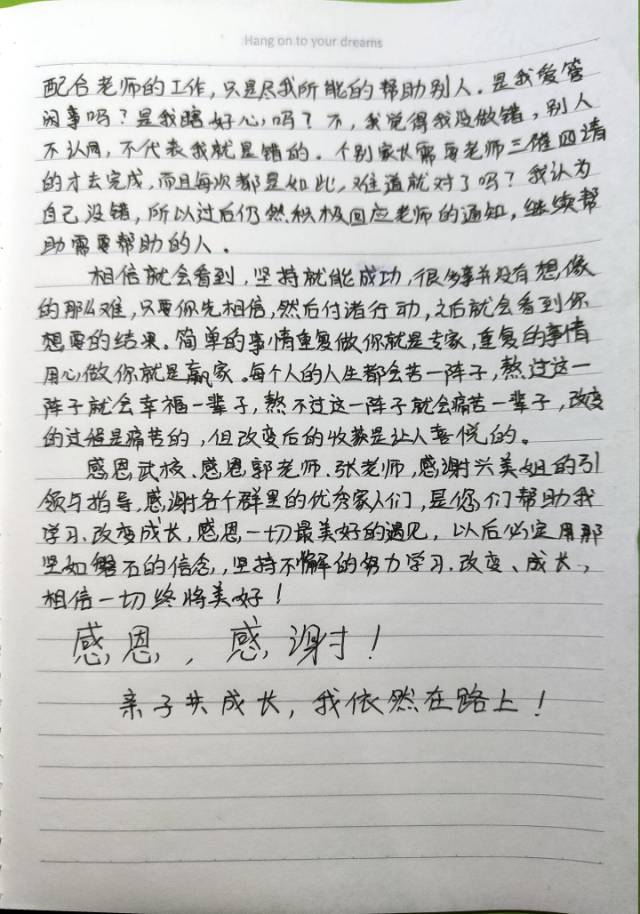 Hang on to your dreams
配合老师的工作,只是尽我所能的帮助别人。是我爱管
闲事吗?是我瞎好心吗?不,我觉得我没做错,别人
不认同,不代表我就是错的。个别家长需要老师三催四请
的才去完成,而且每次都是如此,难道就对了吗?我认为
自己没错,所以过后仍然积极回应老师的通知,继续帮
助需要帮助的人。
相信就会看到,坚持就能成功,很多事并没有想像
的那么难,只要你先相信,然后付诸行动,之后就会看到你
想要的结果。简单的事情重复做你就是专家,重复的事情
用心做你就是赢家。每个人的人生都会苦一阵子,熬过这一
阵子就会幸福一辈子,熬不过这一阵子就会痛苦一辈子,改变
的过程是痛苦的,但改变后的收获是让人喜悦的。
感恩武校、感恩郭老师、张老师,感谢兴美姐的引
领与指导,感谢各个群里的优秀家人们,是您们帮助我
学习、改变成长,感恩一切最美好的遇见,以后必定用那
坚如磐石的信念,坚持不懈的努力学习、改变、成长、,
相信一切终将美好!
感恩,感谢!
亲子共成长,我依然在路上!